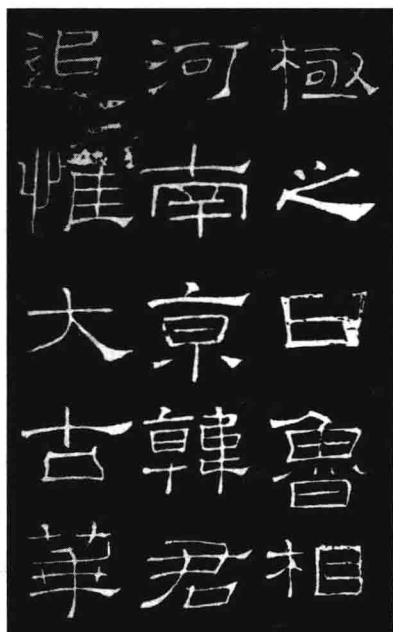 極之日魯相
河南京韓君
追惟大古華